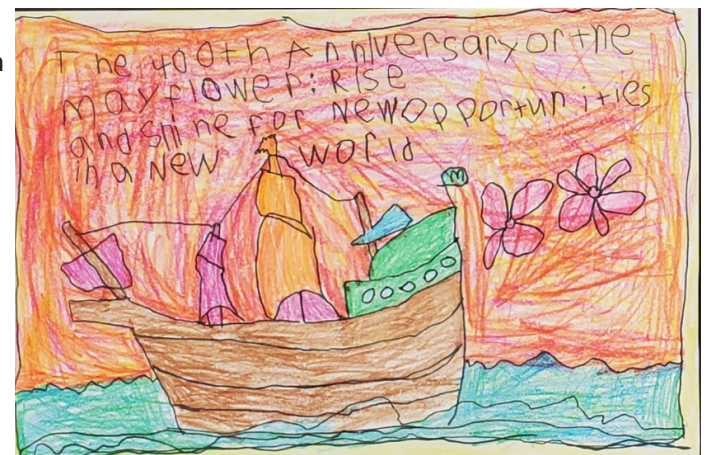 The 400th Anniversary of the
mayflower: Rise
and shine for New Opportunities
in a New World
m